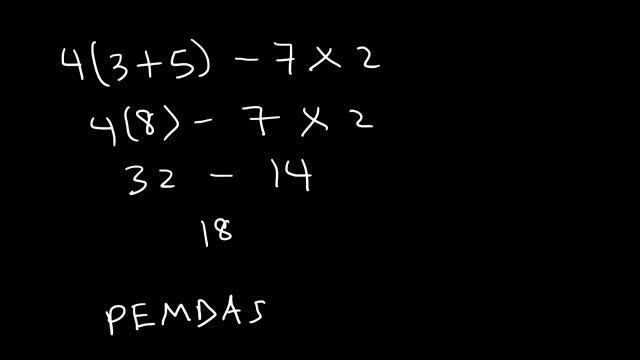 4(3+5) - 7 × 2
4(8) - 7 × 2
32 - 14
18
PEMDAS